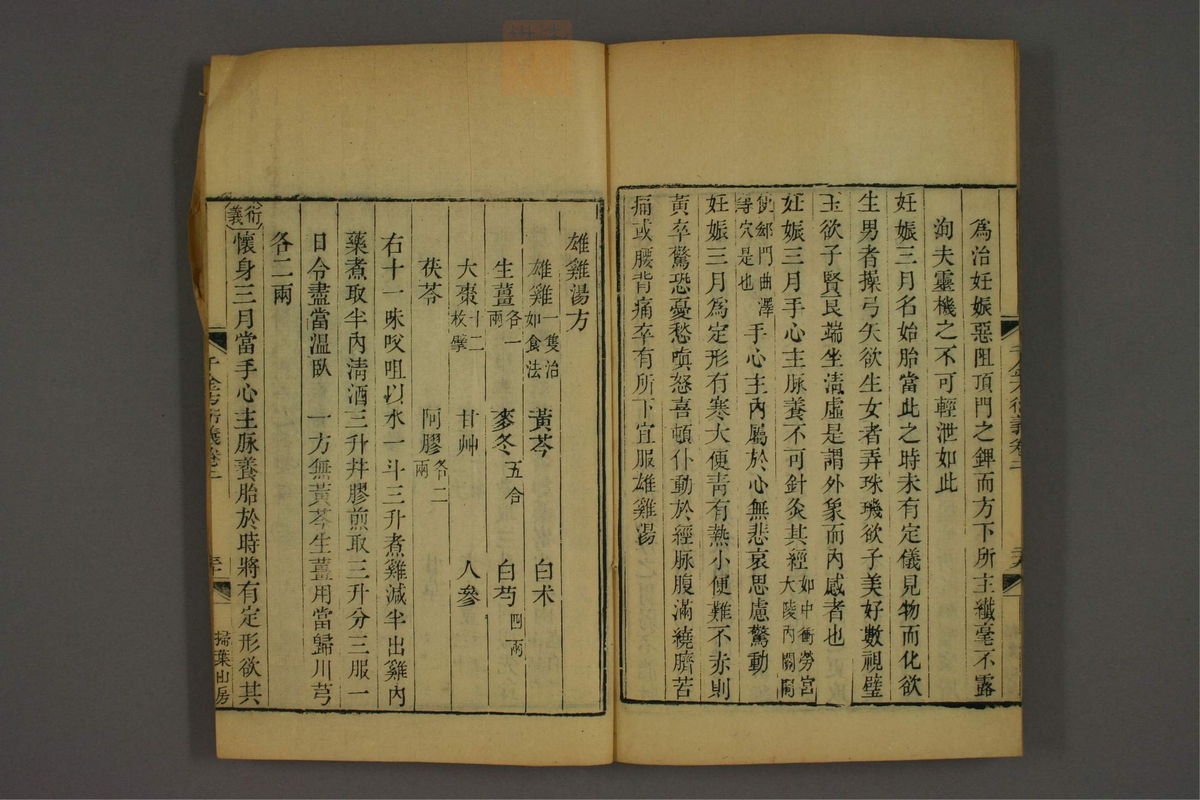 為治妊娠惡阻頂門之鍼而方下所主纖毫不露
洵夫靈機之不可輕泄如此
妊娠三月名始胎當此之時未有定儀見物而化欲
生男者操弓矢欲生女者弄珠璣欲子美好數視璧
玉欲子賢良端坐清虛是謂外象而內感者也
妊娠三月手心主脉養不可針灸其經如中衝勞宮大陵內關間
使郄門曲澤等穴是也手心主內屬於心無悲哀思慮驚動
妊娠三月為定形有寒大便青有熱小便難不赤則
黃卒驚恐憂愁嗔怒喜頓仆動於經脉腹滿繞臍苦
痛或腰背痛卒有所下宜服雄雞湯
雄雞湯方
雄雞一隻治如食法 黃芩 白朮
生薑各一兩 麥冬五合 白芍四兩
大棗十二枚擘 甘艸 人參
茯苓 阿膠各二兩
右十一味㕮咀以水一斗三升煮雞減半出雞內
藥煮取半內清酒三升幷膠煎取三升分三服一
日令盡當溫臥 一方無黃芩生薑用當歸川芎
各二兩
衍義 懷身三月當手心主脉養胎於時將有定形欲其
千金方衍義卷二
掃葉山房